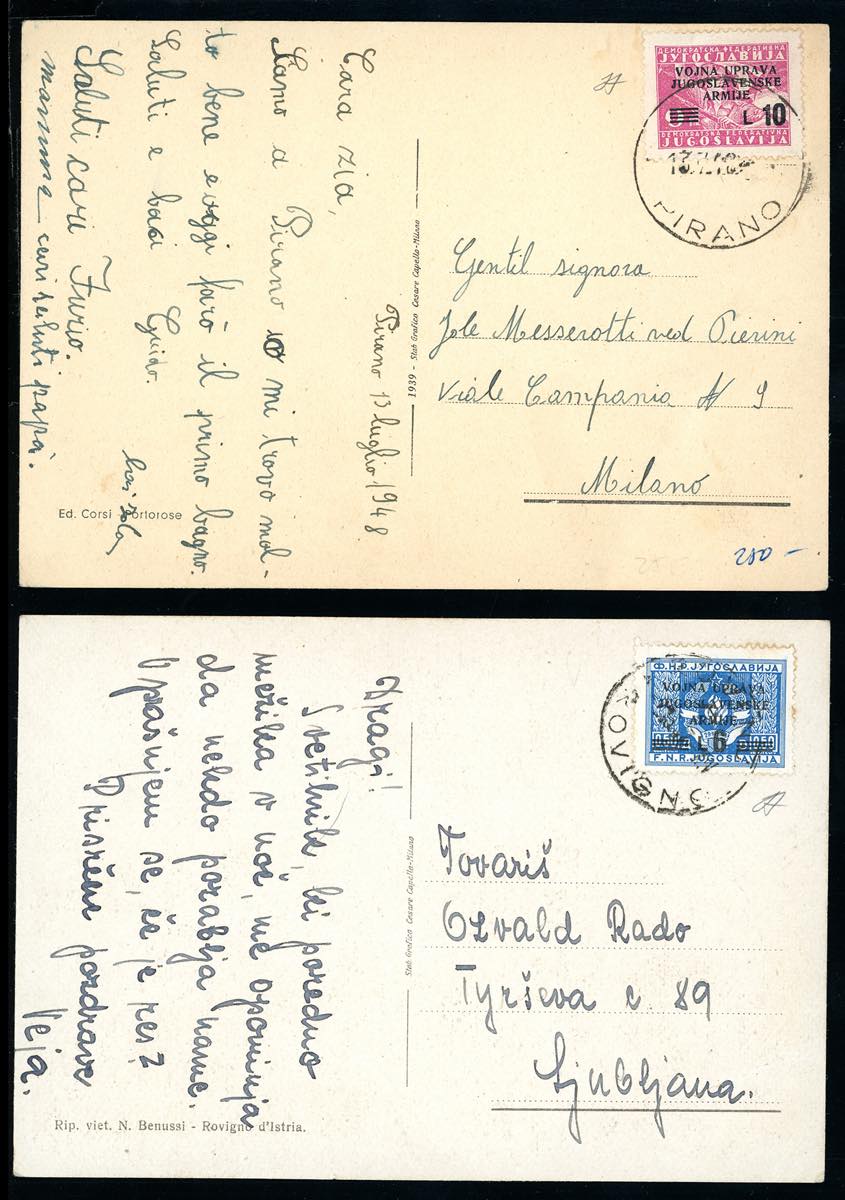 Cara zia,
Sono a Pirano mi trovo mol-
to bene e oggi farò il primo bagno.
Saluti e baci Guido.
Saluti cari Furio.
cari saluti papà.
Pirano 13 luglio 1948
Ed. Corsi - Portorose
1939 - Stab Grafico Cesare Capello-Milano
ДЕМОКРАТСКА ФЕДЕРАТИВНА
ЈУГОСЛАВИЈА
VOJNA UPRAVA
JUGOSLAVENSKE
ARMIJE
L 10
DEMOKRATSKA FEDERATIVNA
JUGOSLAVIJA
PIRANO
Gentil signora
Jole Messerotti ved Pierini
Viale Campania N 9
Milano
250 -
Dragi!
Svetilnik, ki poredno
mežika v noč, me opominja
da nekdo porablja name.
Vprašujem se, če je res?
Prisrčne pozdrave
Veja.
Rip. viet. N. Benussi - Rovigno d'Istria.
Stab Grafico Cesare Capello-Milano
Ф.Н.Р. ЈУГОСЛАВИЈА
VOJNA UPRAVA
JUGOSLAVENSKE
ARMIJE
L 6
F.N.R. JUGOSLAVIJA
Tovariš
Ozvald Rado
Tyrševa c. 89
Ljubljana.